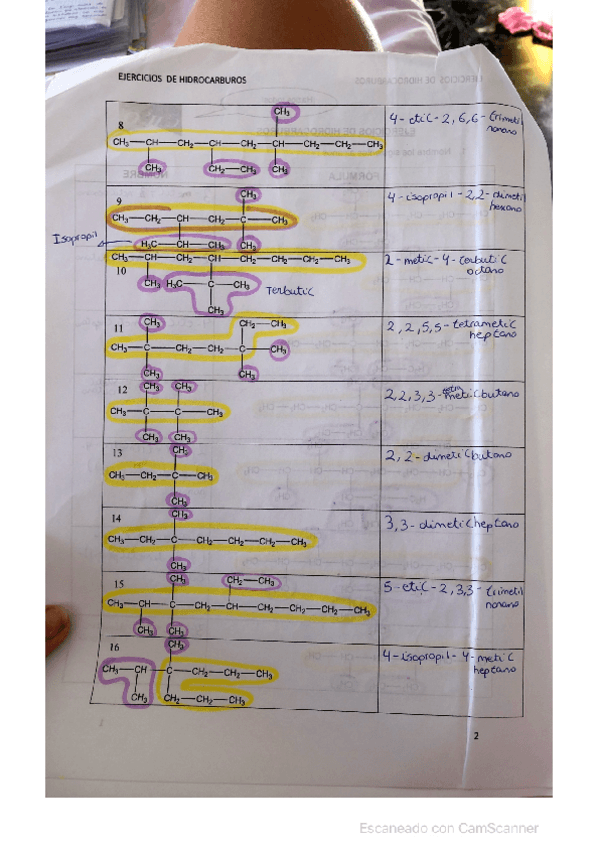 EJERCICIOS DE HIDROCARBUROS
CH₃
8
CH₃—CH—CH₂—CH—CH₂—CH—CH₂—CH₂—CH₃
CH₃ CH₂—CH₃ CH₃
4-etil-2,6,6-trimetil
nonano
9
CH₃
CH₃—CH₂—CH—CH₂—C—CH₃
H₃C—CH—CH₃ CH₃
Isopropil
4-isopropil-2,2-dimetil
hexano
CH₃—CH—CH₂—CH—CH₂—CH₂—CH₂—CH₃
10
CH₃ H₃C—C—CH₃
CH₃
Terbutil
2-metil-4-terbutil
octano
11
CH₃ CH₂—CH₃
CH₃—C—CH₂—CH₂—C—CH₃
CH₃ CH₃
2,2,5,5-tetrametil
heptano
12
CH₃ CH₃
CH₃—C—C—CH₃
CH₃ CH₃
2,2,3,3-tetrametilbutano
13
CH₃
CH₃—CH₂—C—CH₃
CH₃
2,2-dimetilbutano
14
CH₃
CH₃—CH₂—C—CH₂—CH₂—CH₂—CH₃
CH₃
3,3-dimetilheptano
15
CH₃ CH₂—CH₃
CH₃—CH—C—CH₂—CH—CH₂—CH₂—CH₂—CH₃
CH₃ CH₃
5-etil-2,3,3-trimetil
nonano
16
CH₃
CH₃—CH—C—CH₂—CH₂—CH₃
CH₃ CH₂—CH₂—CH₃
4-isopropil-4-metil
heptano
2
Escaneado con CamScanner